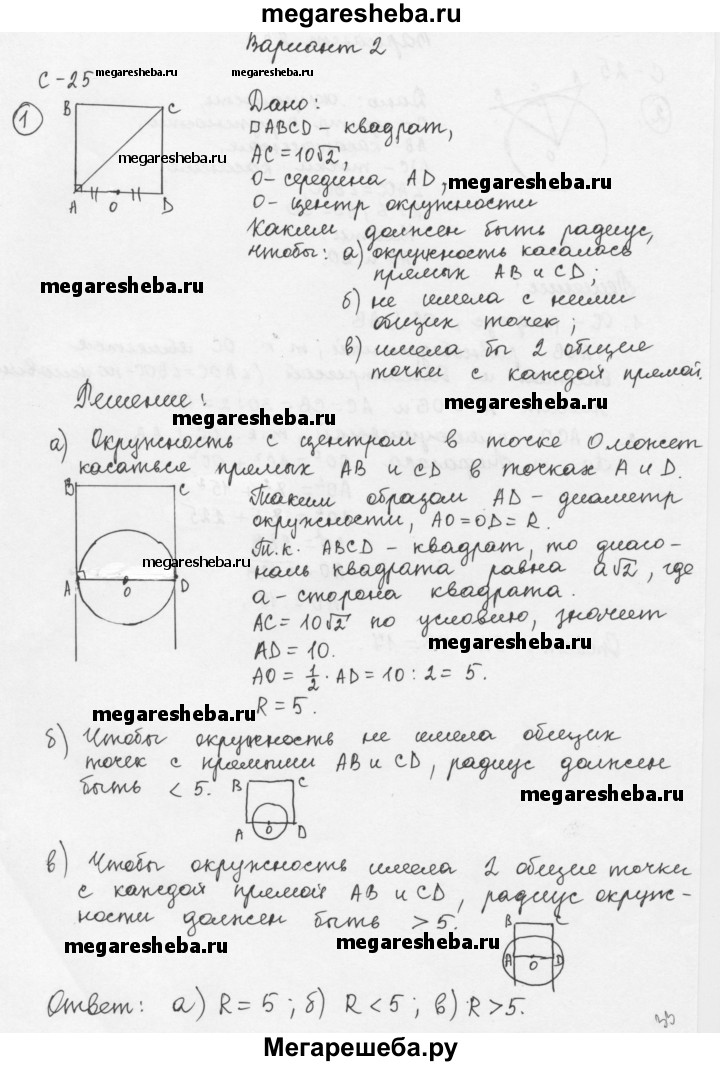 megaresheba.ru
Вариант 2
С-25 megaresheba.ru megaresheba.ru
1 B C Дано:
□ABCD – квадрат,
megaresheba.ru AC = 10√2,
О – середина AD, megaresheba.ru
A O D О – центр окружности
Каким должен быть радиус,
чтобы: а) окружность касалась
megaresheba.ru прямых AB и CD;
б) не имела с ними
общих точек;
в) имела бы 2 общие
точки с каждой прямой.
Решение: megaresheba.ru megaresheba.ru
а) Окружность с центром в точке О может
касаться прямых AB и CD в точках A и D.
B C Таким образом AD – диаметр
окружности, AO = OD = R.
megaresheba.ru Т.к. ABCD – квадрат, то диаго-
наль квадрата равна a√2, где
A O D a – сторона квадрата.
AC = 10√2 по условию, значит
AD = 10. megaresheba.ru
AO = 1/2 · AD = 10 : 2 = 5.
megaresheba.ru R = 5.
б) Чтобы окружность не имела общих
точек с прямыми AB и CD, радиус должен
быть < 5. B C megaresheba.ru
A O D
в) Чтобы окружность имела 2 общие точки
с каждой прямой AB и CD, радиус окруж-
ности должен быть > 5.
megaresheba.ru megaresheba.ru B C
A O D
Ответ: а) R = 5; б) R < 5; в) R > 5.
33
Мегарешеба.ру